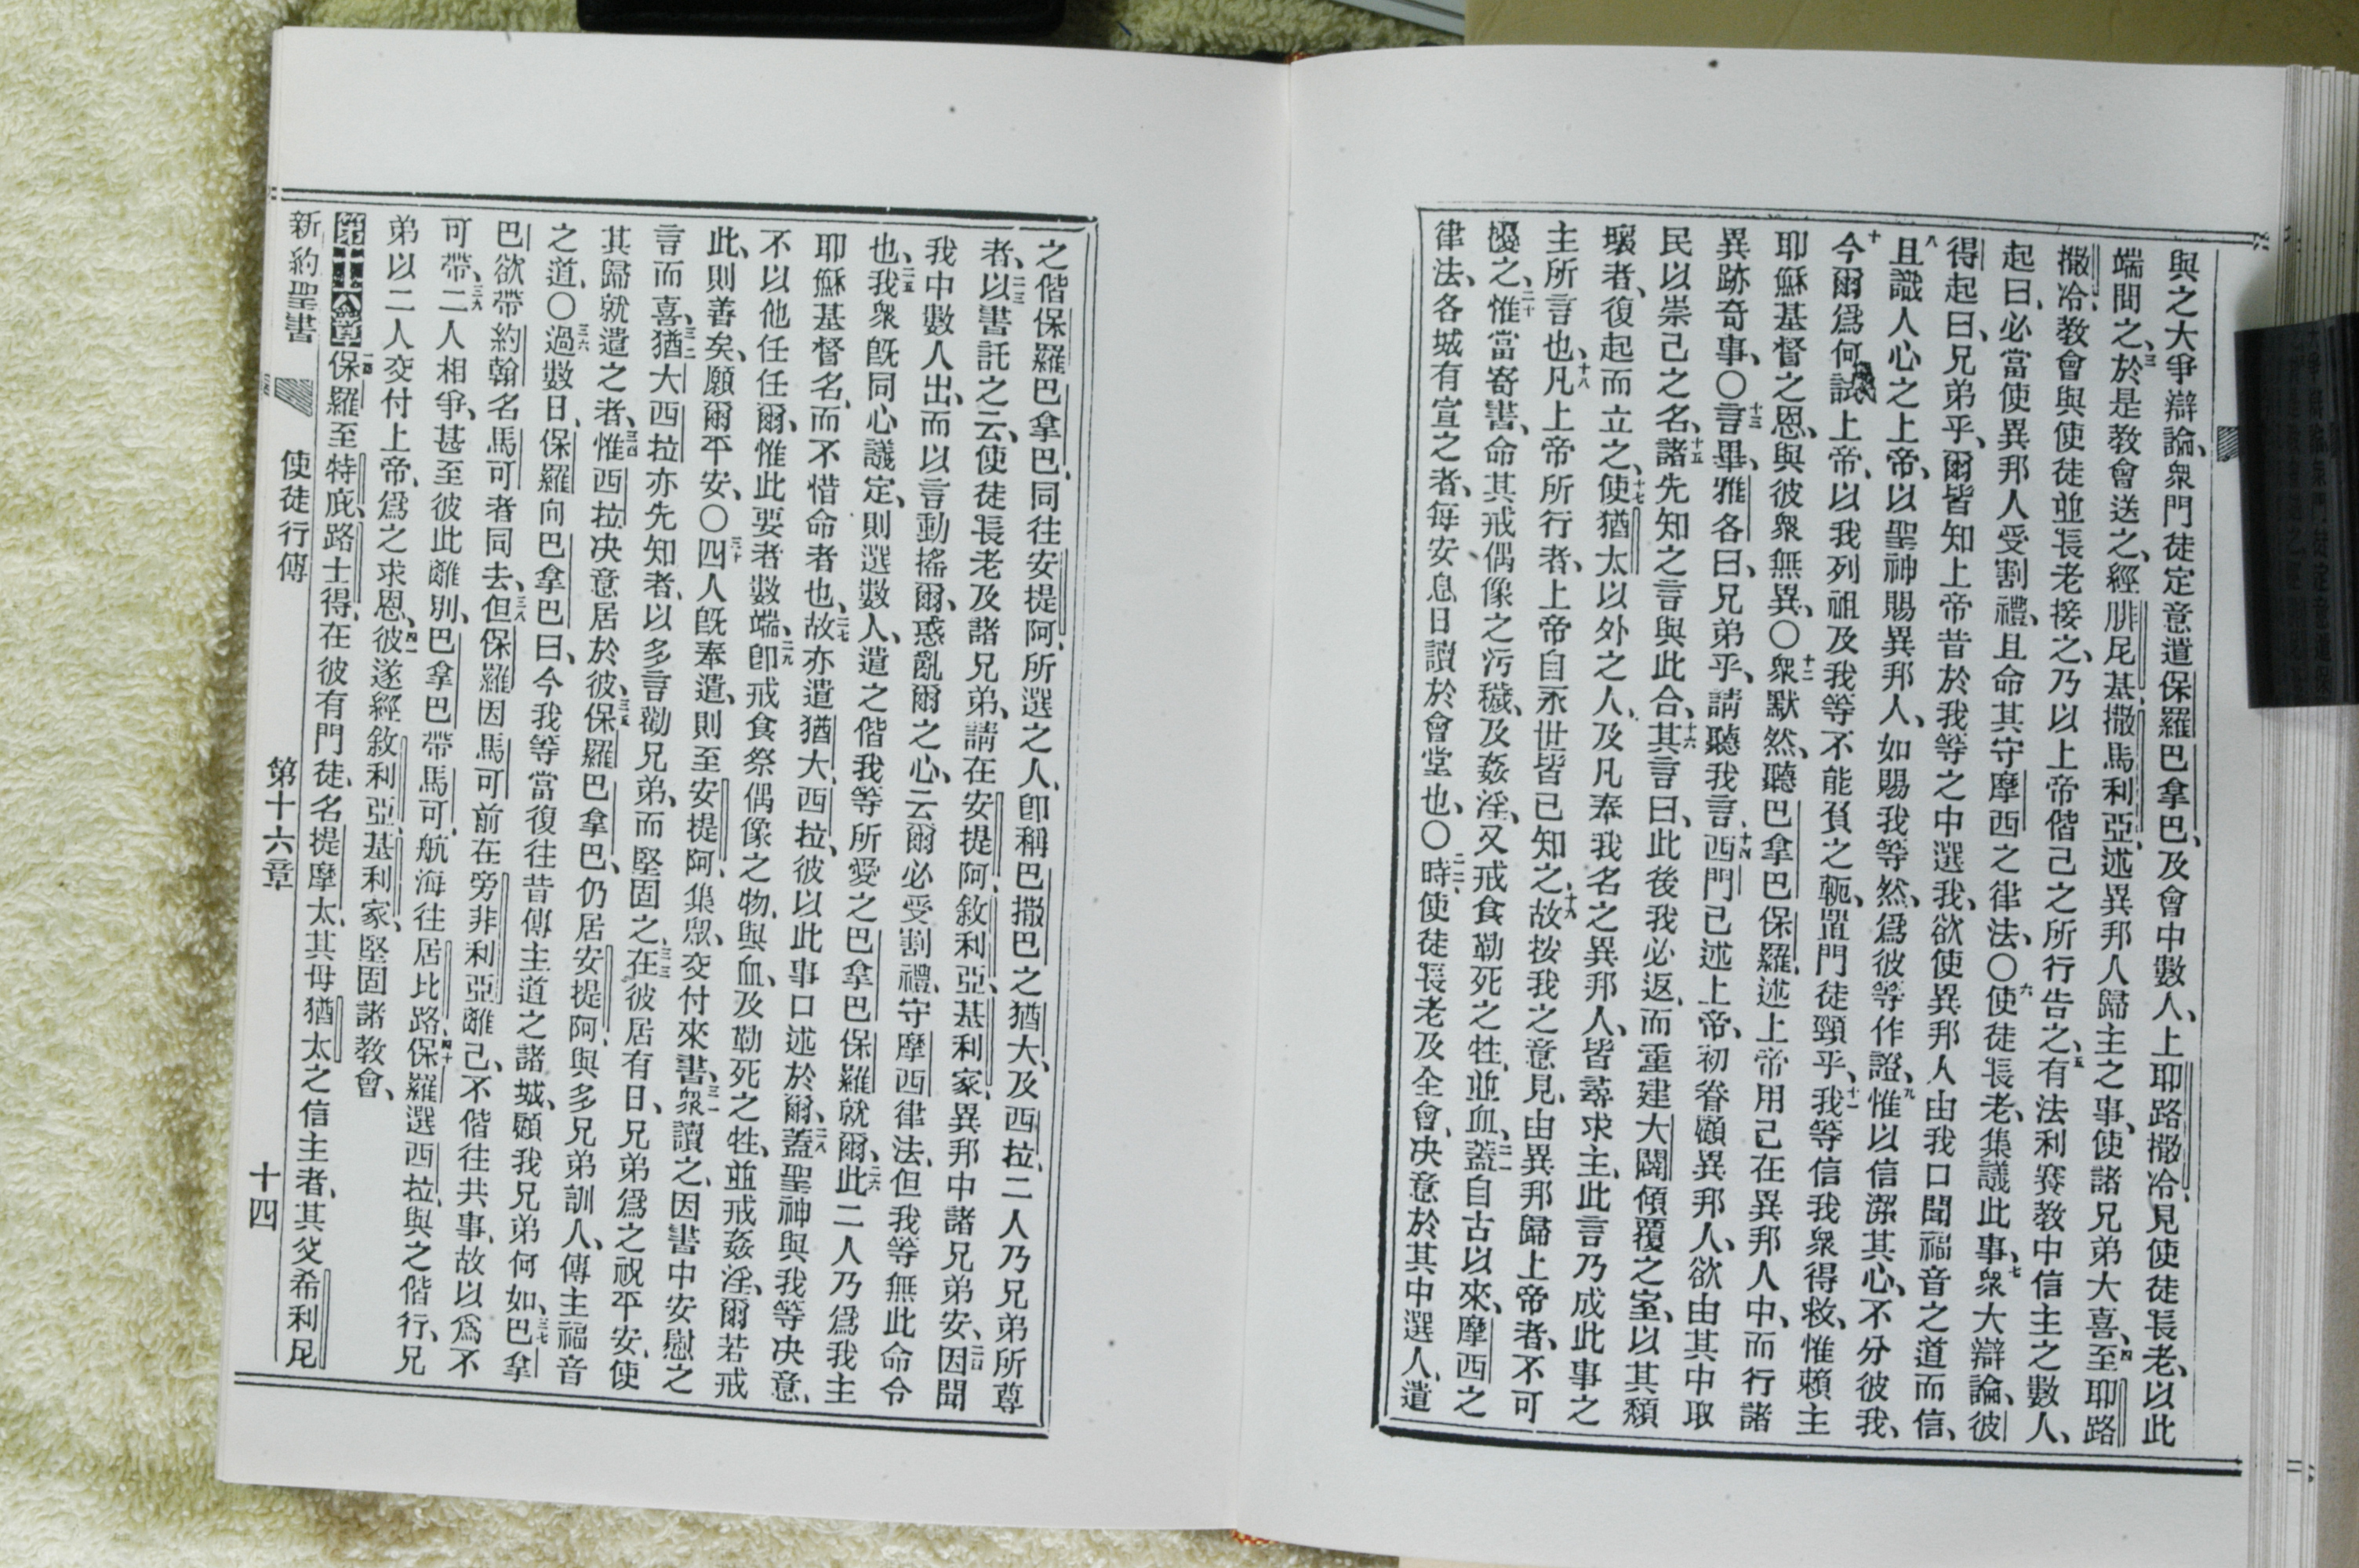 與之大爭辯論、衆門徒定意遣保羅巴拿巴、及會中數人、上耶路撒冷、見使徒長老、以此
端問之、三於是教會送之、經腓尼基、撒馬利亞、述異邦人歸主之事、使諸兄弟大喜、四至耶路
撒冷、教會與使徒並長老接之、乃以上帝偕己之所行告之、五有法利賽教中信主之數人、
起曰、必當使異邦人受割禮、且命其守摩西之律法、〇六使徒長老、集議此事、七衆大辯論、彼
得起曰、兄弟乎、爾皆知上帝昔於我等之中選我、欲使異邦人由我口聞福音之道而信、
八且識人心之上帝、以聖神賜異邦人、如賜我等然、爲彼等作證、九惟以信潔其心、不分彼我、
十今爾爲何試上帝、以我列祖及我等不能負之軛、置門徒頸乎、十一我等信我衆得救、惟賴主
耶穌基督之恩、與彼衆無異、〇十二衆默然、聽巴拿巴保羅、述上帝用己在異邦人中、而行諸
異跡奇事、〇十三言畢、雅各曰、兄弟乎、請聽我言、十四西門已述上帝、初眷顧異邦人、欲由其中取
民以崇己之名、十五諸先知之言與此合、十六其言曰、此後我必返、而重建大闢傾覆之室、以其頹
壞者、復起而立之、十七使猶太以外之人、及凡奉我名之異邦人、皆尋求主、此言乃成此事之
主所言也、十八凡上帝所行者、上帝自永世皆已知之、十九故按我之意見、由異邦歸上帝者、不可
擾之、二十惟當寄書、命其戒偶像之污穢、及姦淫、又戒食勒死之牲、並血、二一蓋自古以來、摩西之
律法、各城有宣之者、每安息日讀於會堂也、〇二二時、使徒長老及全會、決意於其中選人、遣
之偕保羅巴拿巴、同往安提阿、所選之人、卽稱巴撒巴之猶大、及西拉、二人乃兄弟所尊
者、二三以書託之云、使徒長老及諸兄弟、請在安提阿、敘利亞、基利家、異邦中諸兄弟安、二四因聞
我中數人出、而以言動搖爾、惑亂爾之心、云爾必受割禮、守摩西律法、但我等無此命令
也、二五我衆旣同心議定、則選數人、遣之偕我等所愛之巴拿巴保羅就爾、二六此二人乃爲我主
耶穌基督名、而不惜命者也、二七故亦遣猶大、西拉、彼以此事口述於爾、二八蓋聖神與我等決意、
不以他任任爾、惟此要者數端、二九卽戒食祭偶像之物、與血、及勒死之牲、並戒姦淫、爾若戒
此、則善矣、願爾平安、〇三十四人旣奉遣、則至安提阿、集衆、交付來書、三一衆讀之、因書中安慰之
言而喜、三二猶大西拉亦先知者、以多言勸兄弟、而堅固之、三三在彼居有日、兄弟爲之祝平安、使
其歸就遣之者、三四惟西拉決意居於彼、三五保羅巴拿巴、仍居安提阿、與多兄弟訓人、傳主福音
之道、〇三六過數日、保羅向巴拿巴曰、今我等當復往昔傳主道之諸城、顧我兄弟何如、三七巴拿
巴欲帶約翰名馬可者同去、三八但保羅因馬可前在旁非利亞離己、不偕往共事、故以爲不
可帶、三九二人相爭、甚至彼此離別、巴拿巴帶馬可、航海往居比路、四十保羅選西拉、與之偕行、兄
弟以二人交付上帝、爲之求恩、四一彼遂經敘利亞、基利家、堅固諸教會、
第十六章 一保羅至特庇、路士得、在彼有門徒、名提摩太、其母猶太之信主者、其父希利尼
新約聖書 使徒行傳 第十六章 十四